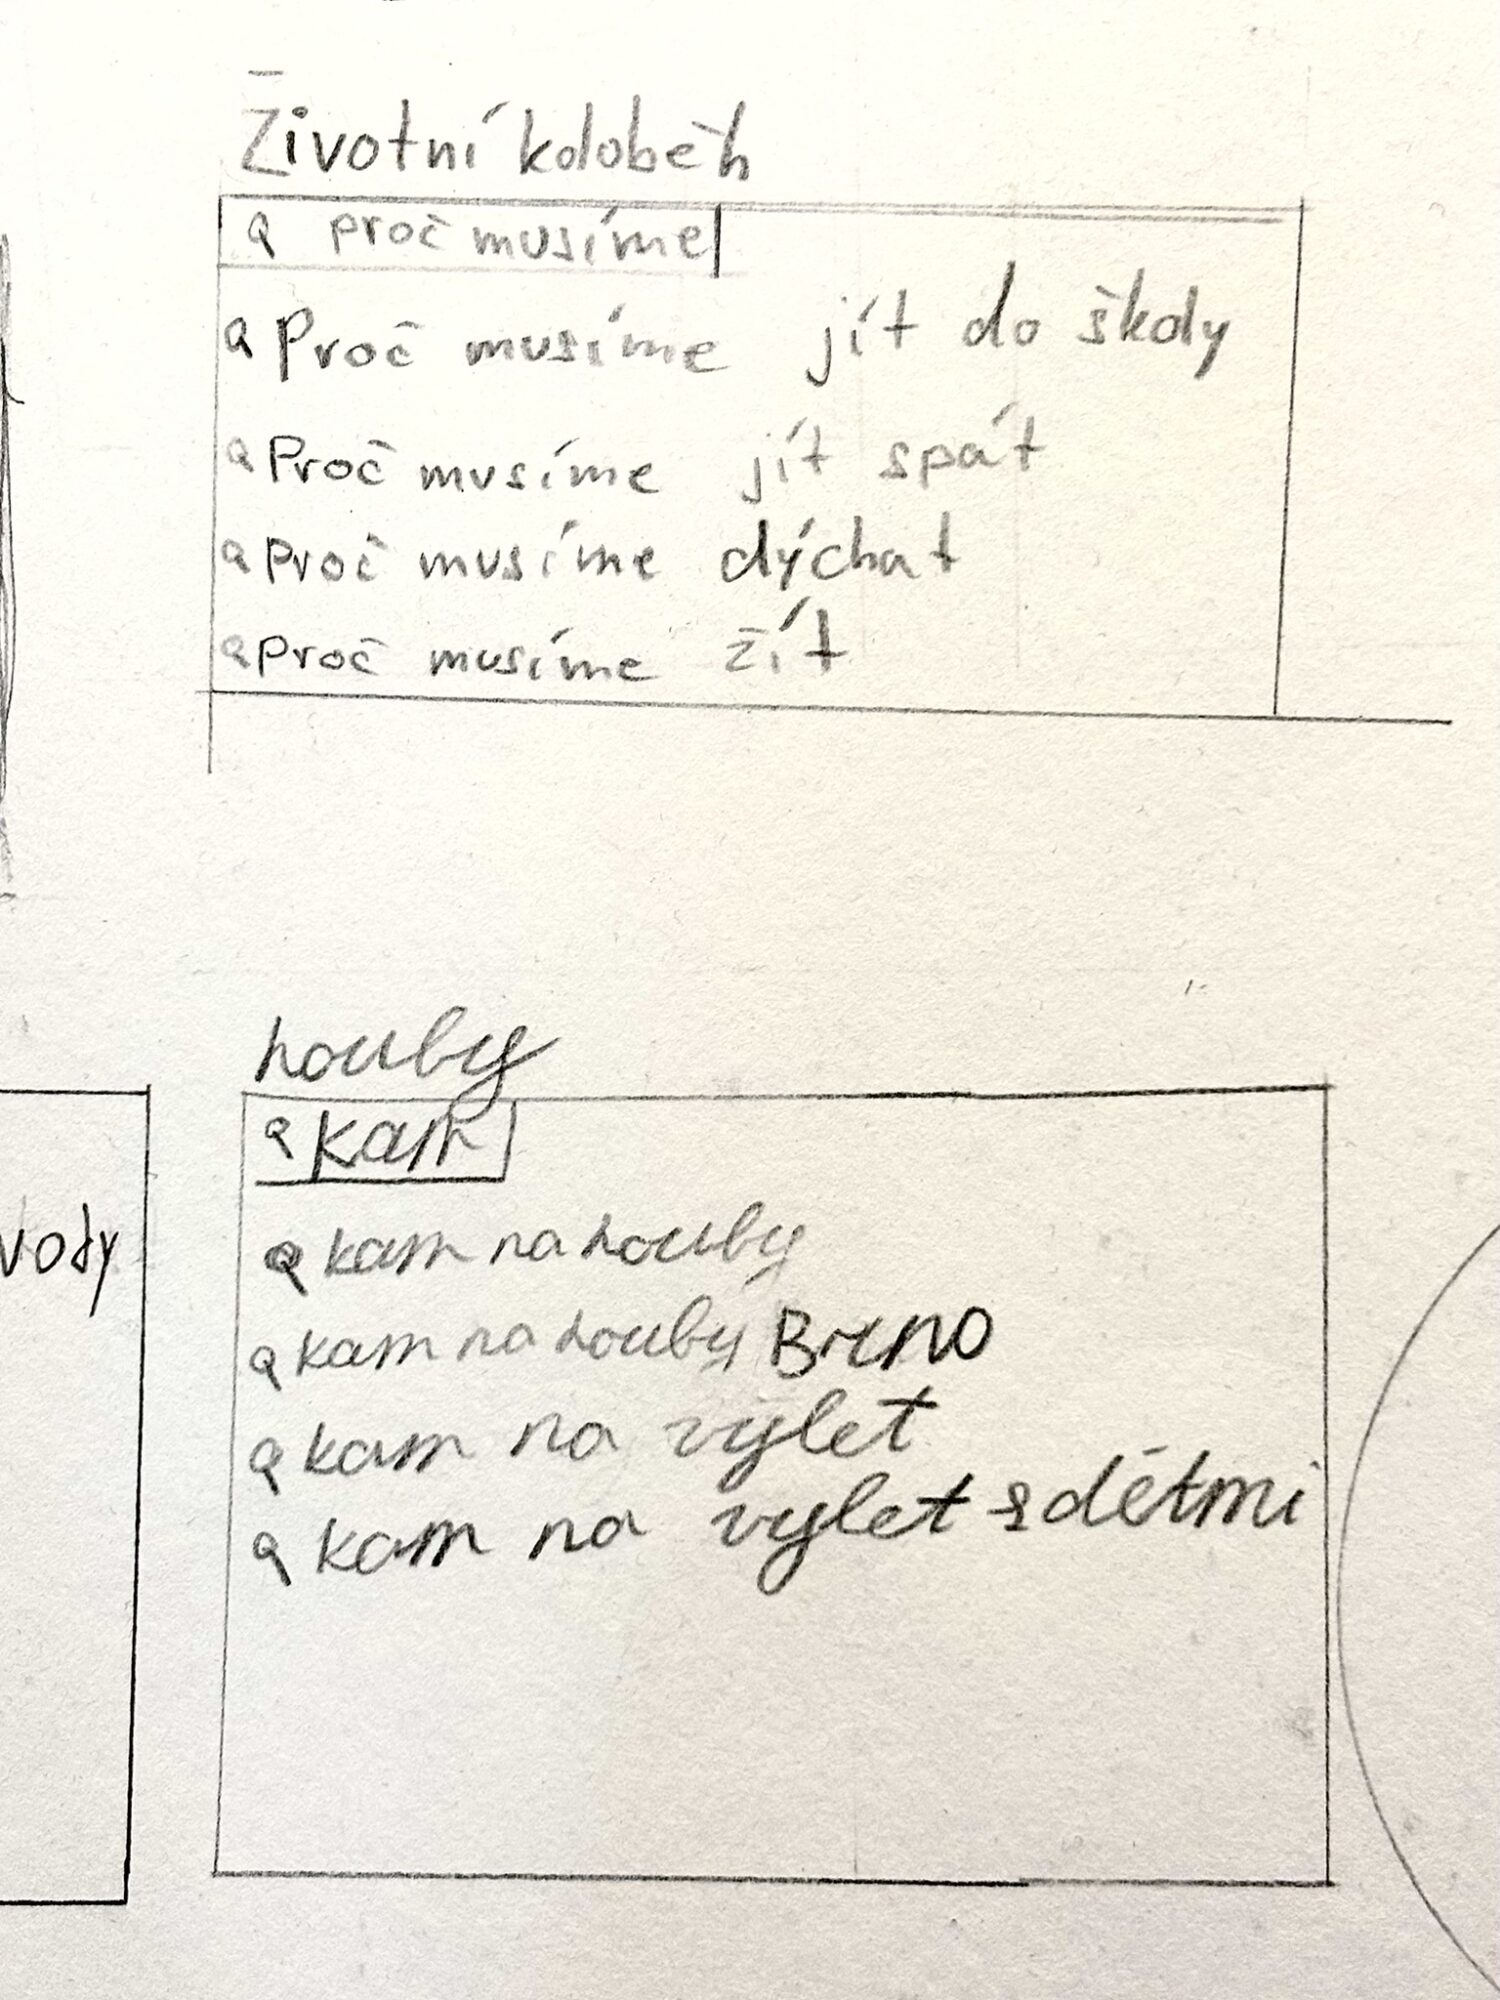 Životní koloběh
proč musíme
Proč musíme jít do školy
Proč musíme jít spát
Proč musíme dýchat
Proč musíme žít
houby
kam
kam na houby
vody
kam na houby Brno
kam na výlet
kam na vylet s dětmi